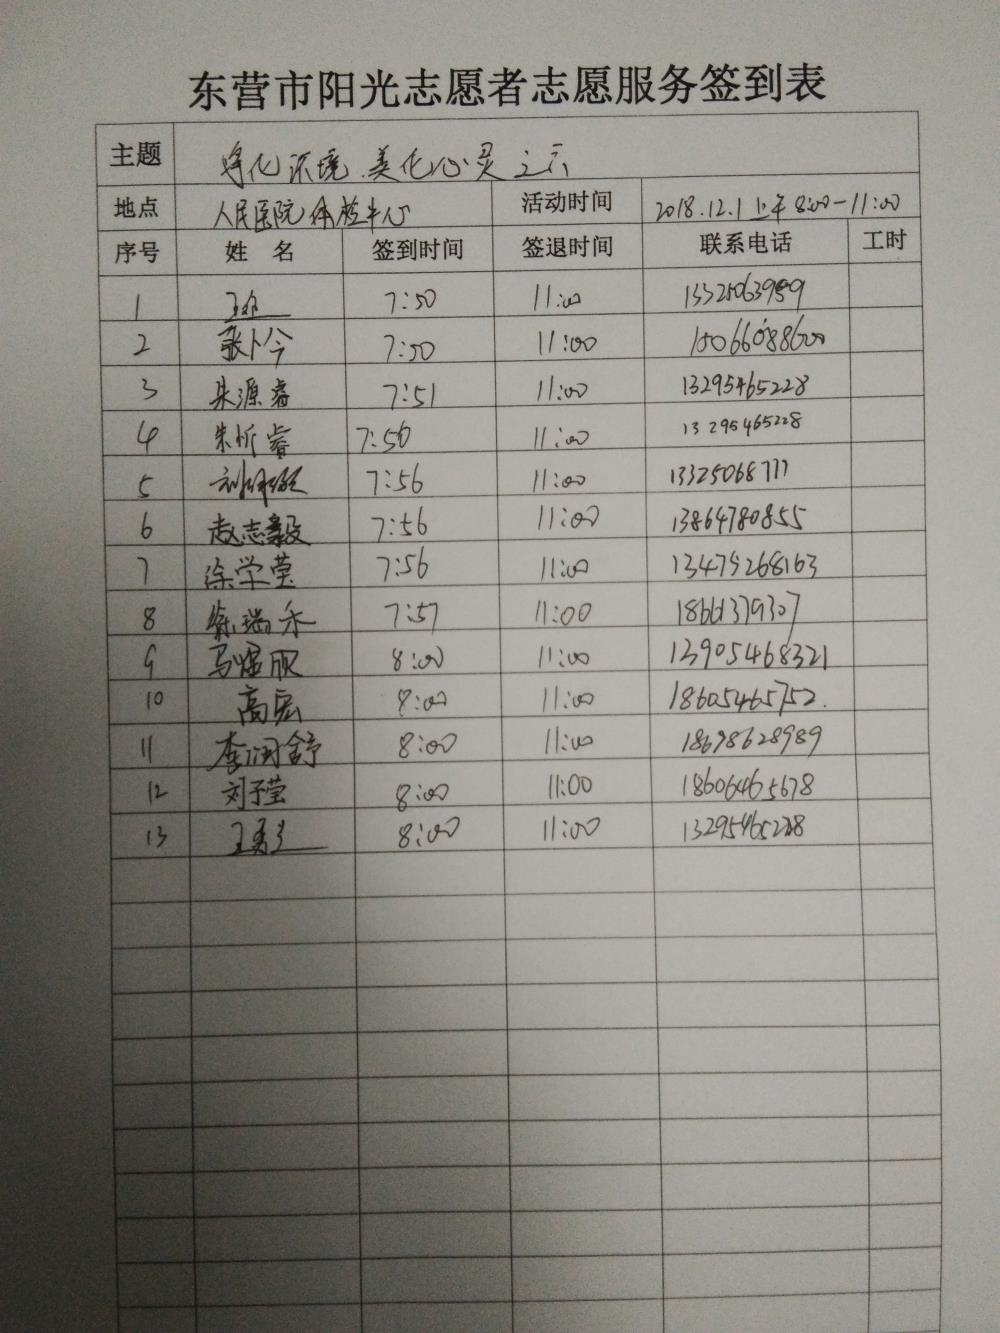 东营市阳光志愿者志愿服务签到表
主题 净化环境 美化心灵之六
地点 人民医院体检中心 活动时间 2018.12.1 上午 8:00-11:00
序号 姓 名 签到时间 签退时间 联系电话 工时
1 7:50 11:00 13325063959
2 张卜今 7:50 11:00 15066088600
3 朱源睿 7:51 11:00 13295465228
4 朱忻睿 7:56 11:00 13295465228
5 7:56 11:00 13325068777
6 赵志毅 7:56 11:00 13864780855
7 徐学莹 7:56 11:00 13475268163
8 徐瑞禾 7:57 11:00 18661379307
9 8:00 11:00 13905468321
10 高宏 8:00 11:00 18605465752.
11 李润舒 8:00 11:00 18698628989
12 刘子莹 8:00 11:00 18606465678
13 8:00 11:00 13295465228